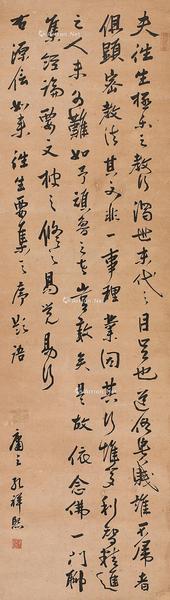 夫往生極樂之教行濁世末代之目足也道俗貴賤誰不歸者
但顯密教法其文非一事理業因其行惟多利智精進
之人未為難如予頑魯之者豈敢矣是故依念佛一門聊
集經論要文披之修之易覺易行
右源信如來往生要集之序題語
庸之孔祥熙